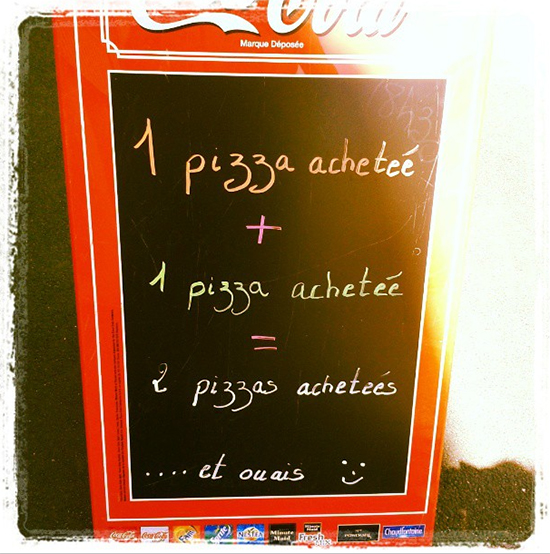 Cola
Marque Déposée
1 pizza acheteé
+
1 pizza acheteé
=
2 pizzas acheteés
.... et ouais :-)
Coca-Cola Coca-Cola NESTEA Minute Maid Minute Maid Fresh Mix Chaudfontaine